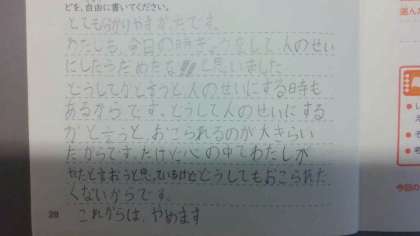 どを、自由に書いてください。
とても分かりやすかったです。
わたしも、今日の時き、うをして人のせい
にしたらだめだなと思いました
どうしてかと言うと人のせいにする時も
あるからです。どうして人のせいにする
かと言うと、おこられるのが大きらい
だからです。だけど心の中でわたしが
やったと言おうと思っているけどどうしてもおこられた
くないからです。
これからは、やめます
28
選ん
今回の